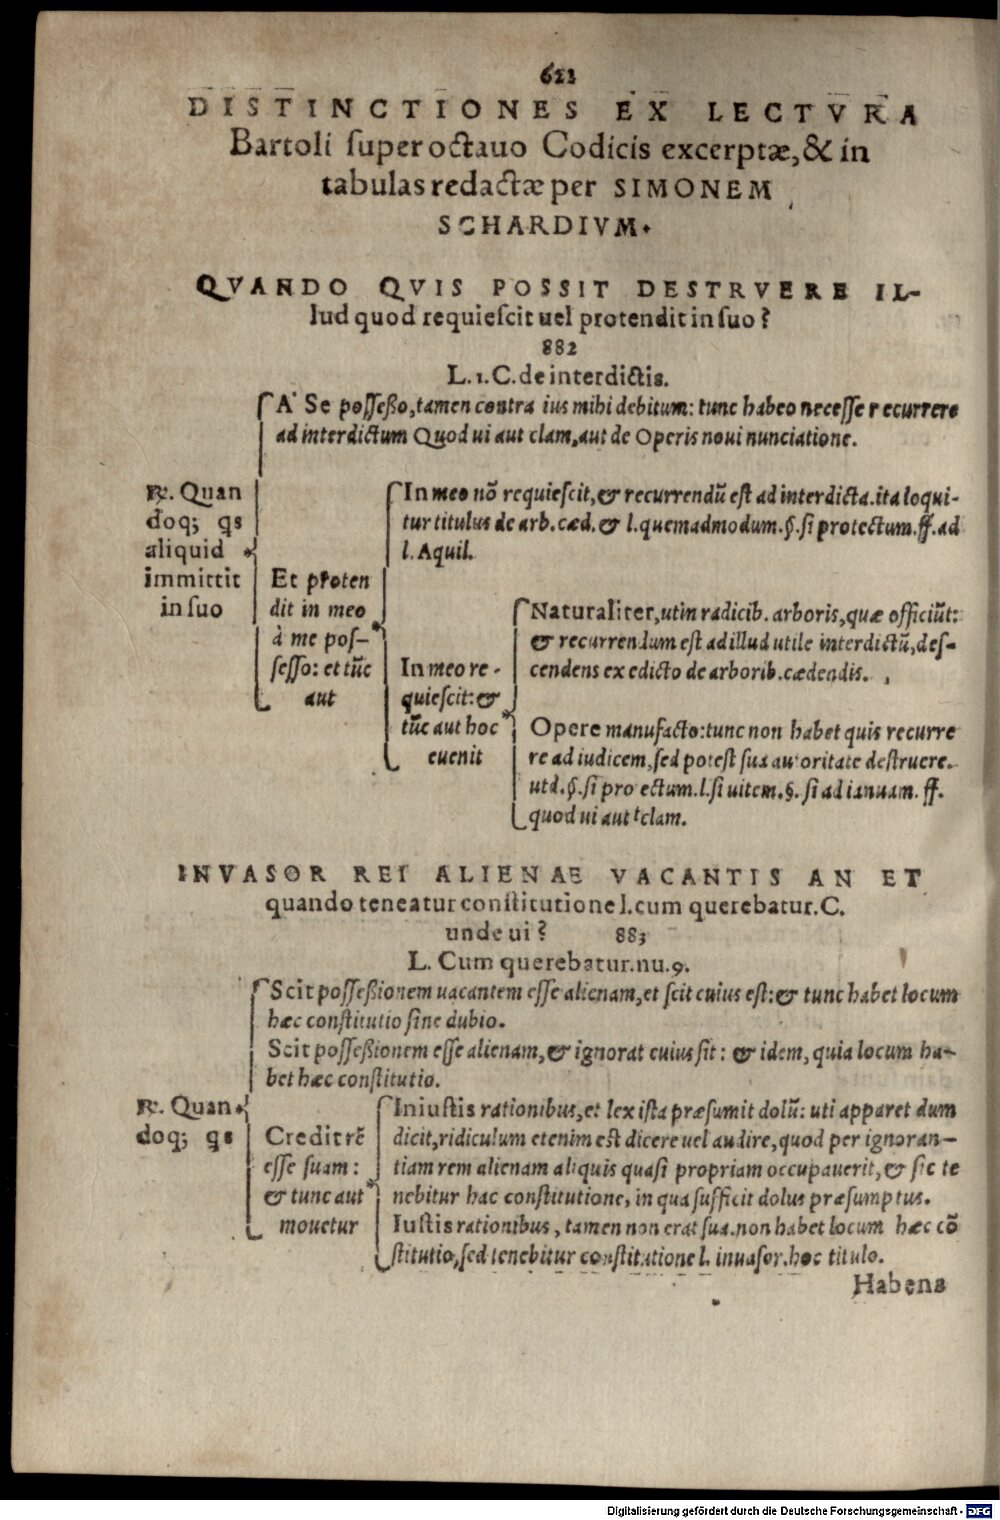 622
DISTINCTIONES EX LECTVRA
Bartoli super octauo Codicis excerptæ, & in
tabulas redactæ per SIMONEM
SCHARDIVM.
QVANDO QVIS POSSIT DESTRVERE IL-
lud quod requiescit uel protendit in suo?
882
L. 1. C. de interdictis.
A' Se possesso, tamen contra ius mihi debitum: tunc habeo necesse recurrere
ad interdictum Quod ui aut clam, aut de Operis noui nunciatione.
R. Quan
doq; qs
aliquid
immittit
in suo
Et proten
dit in meo
à me pos-
sesso: et tūc
aut
In meo nō requiescit, & recurrendū est ad interdicta. ita loqui-
tur titulus de arb. cæd. & l. quemadmodum. §. si protectum. ff. ad
l. Aquil.
In meo re-
quiescit: &
tūc aut hoc
euenit
Naturaliter, utin radicib. arboris, quæ officiūt:
& recurrendum est ad illud utile interdictū, des-
cendens ex edicto de arborib. cædendis.
Opere manufacto: tunc non habet quis recurre
re ad iudicem, sed potest sua autoritate destruere.
ut d. §. si pro ectum. l. si uitem. §. si ad ianuam. ff.
quod ui aut clam.
INVASOR REI ALIENAE VACANTIS AN ET
quando teneatur constitutione l. cum querebatur. C.
unde ui? 883
L. Cum querebatur. nu. 9.
R. Quan
doq; qs
Scit possessionem uacantem esse alienam, et scit cuius est: & tunc habet locum
hæc constitutio sine dubio.
Scit possessionem esse alienam, & ignorat cuius sit: & idem, quia locum ha-
bet hæc constitutio.
Credit rē
esse suam:
& tunc aut
mouetur
Iniustis rationibus, et lex ista præsumit dolū: uti apparet dum
dicit, ridiculum etenim est dicere uel audire, quod per ignoran-
tiam rem alienam aliquis quasi propriam occupauerit, & sic te
nebitur hac constitutione, in qua sufficit dolus præsumptus.
Iustis rationibus, tamen non erat sua. non habet locum hæc cō
stitutio, sed tenebitur constitatione l. inuasor. hoc titulo.
Habens
Digitalisierung gefördert durch die Deutsche Forschungsgemeinschaft - DFG